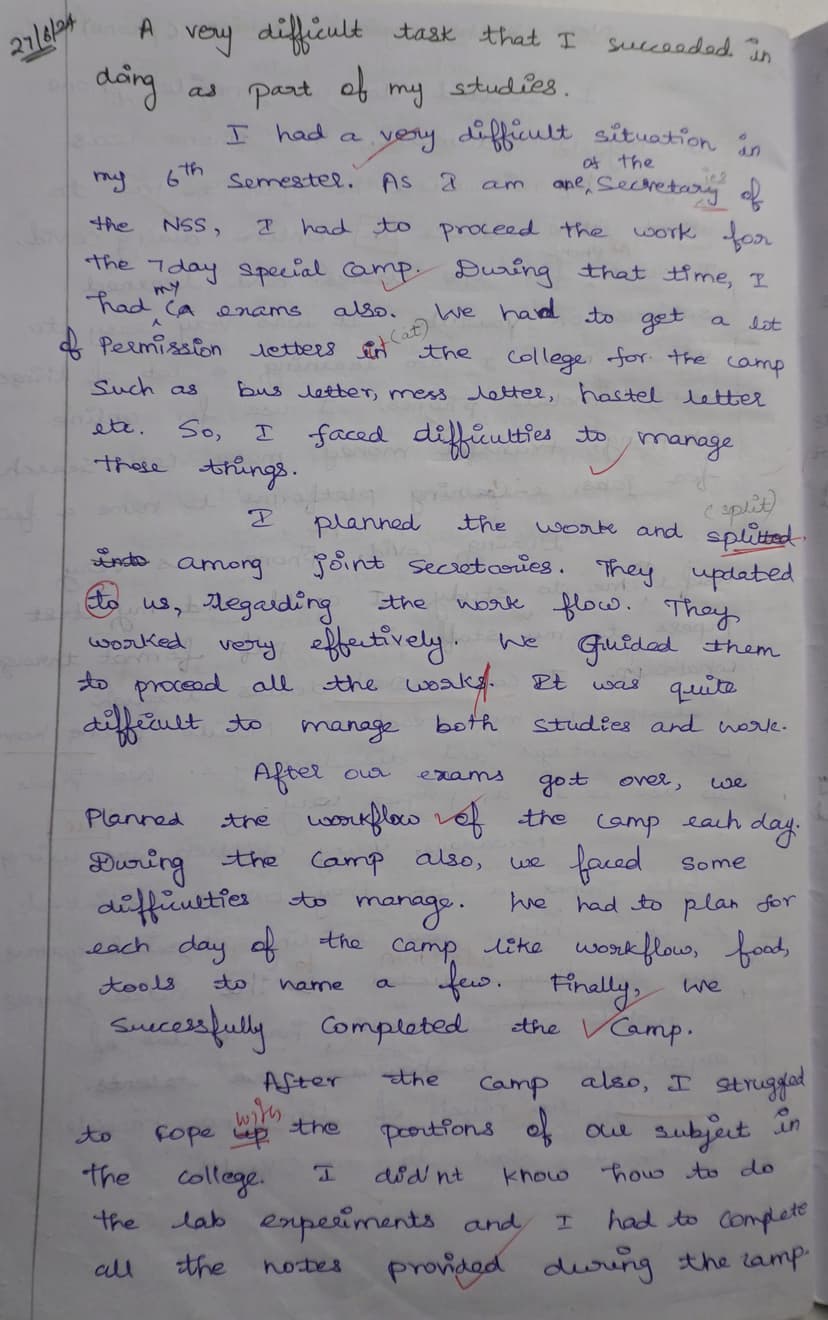 27/6/24
A very difficult task that I succeeded in
doing as part of my studies.
I had a very difficult situation in
of the
my 6th Semester. As I am one, Secretaryies of
the NSS, I had to proceed the work for
the 7day special camp. During that time, I
my
had CA exams also. We had to get a lot
of Permission letters in (at) the college for the camp
Such as bus letter, mess letter, hostel letter
etc. So, I faced difficulties to manage
these things.
(split)
I planned the work and splitted
into among joint secretaries. They updated
to us, regarding the work flow. They
worked very effectively. We Guided them
to proceed all the works. It was quite
difficult to manage both studies and work.
After our exams got over, we
Planned the workflow of the camp each day.
During the camp also, we faced some
difficulties to manage. We had to plan for
each day of the camp like workflow, food,
tools to name a few. Finally, we
Successfully Completed the Camp.
After the camp also, I struggled
with
to cope up the portions of our subject in
the college. I did'nt know how to do
the lab experiments and I had to complete
all the notes provided during the camp.